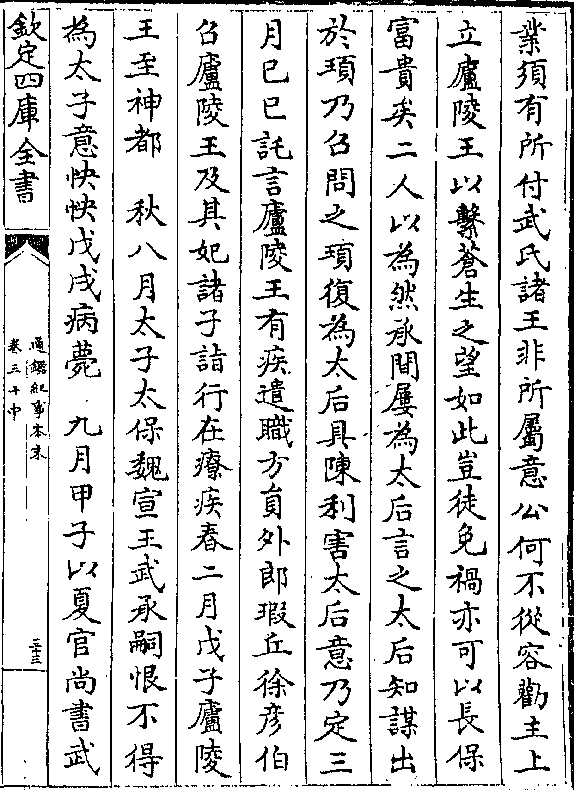 業須有所付武氏諸王非所屬意公何不從容勸主上
立廬陵王以繫蒼生之望如此豈徒免禍亦可以長保
富貴矣二人以為然承間屢為太后言之太后知謀出
於頊乃召問之頊復為太后具陳利害太后意乃定三
月己巳託言廬陵王有疾遣職方員外郎瑕丘徐彦伯
召廬陵王及其妃諸子詣行在療疾春二月戊子廬陵
王至神都　秋八月太子太保魏宣王武承嗣恨不得
為太子意怏怏戊戌病薨　九月甲子以夏官尚書武
欽定四庫全書
通鑑紀事本末
卷三十中
三十三